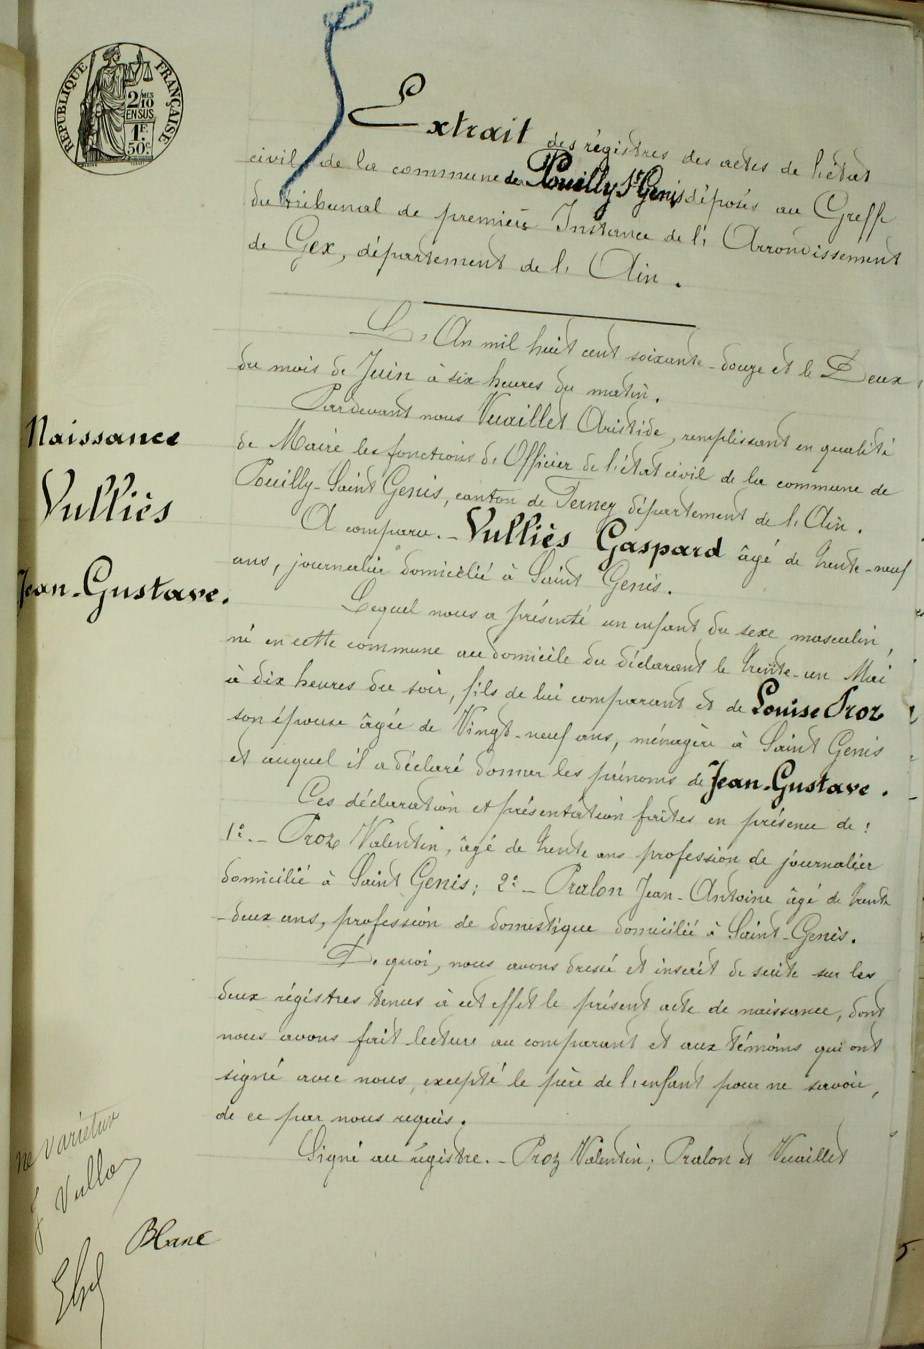 RÉPUBLIQUE FRANÇAISE
2/MES
10
EN SUS
1F.
50c.
Extrait des régistres des actes de l'état
civil de la commune de Pouilly St Genis déposés au Greffe
du tribunal de première Instance de l'Arrondissement
de Gex, département de l'Ain.
L'An mil huit cent soixante-douze et le Deux
du mois de Juin à six heures du matin.
Pardevant nous Vuaillet Aristide, remplissant en qualité
de Maire les fonctions d'Officier de l'état civil de la commune de
Pouilly-Saint Genis, canton de Ferney département de l'Ain.
A comparu. - Vulliès Gaspard âgé de trente-neuf
ans, journalier domicilié à Saint Genis.
Naissance
Vulliès
Jean-Gustave.
Lequel nous a présenté un enfant du sexe masculin,
né en cette commune au domicile du déclarant le trente-un Mai
à dix heures du soir, fils de lui comparant et de Louise Proz
son épouse âgée de Vingt-neuf ans, ménagère à Saint Genis
et auquel il a déclaré donner les prénoms de Jean-Gustave.
Ces déclaration et présentation faites en présence de:
1°. - Proz Valentin, âgé de trente ans profession de journalier
domicilié à Saint Genis; 2° - Pralon Jean-Antoine âgé de trente
-deux ans, profession de domestique domicilié à Saint-Genis.
De quoi, nous avons dressé et inscrit de suite sur les
deux régistres tenus à cet effet le présent acte de naissance, dont
nous avons fait lecture au comparant et aux témoins qui ont
signé avec nous, excepté le père de l'enfant pour ne savoir,
de ce par nous requis.
Signé au régistre. - Proz Valentin; Pralon et Vuaillet
ne varietur
Blanc